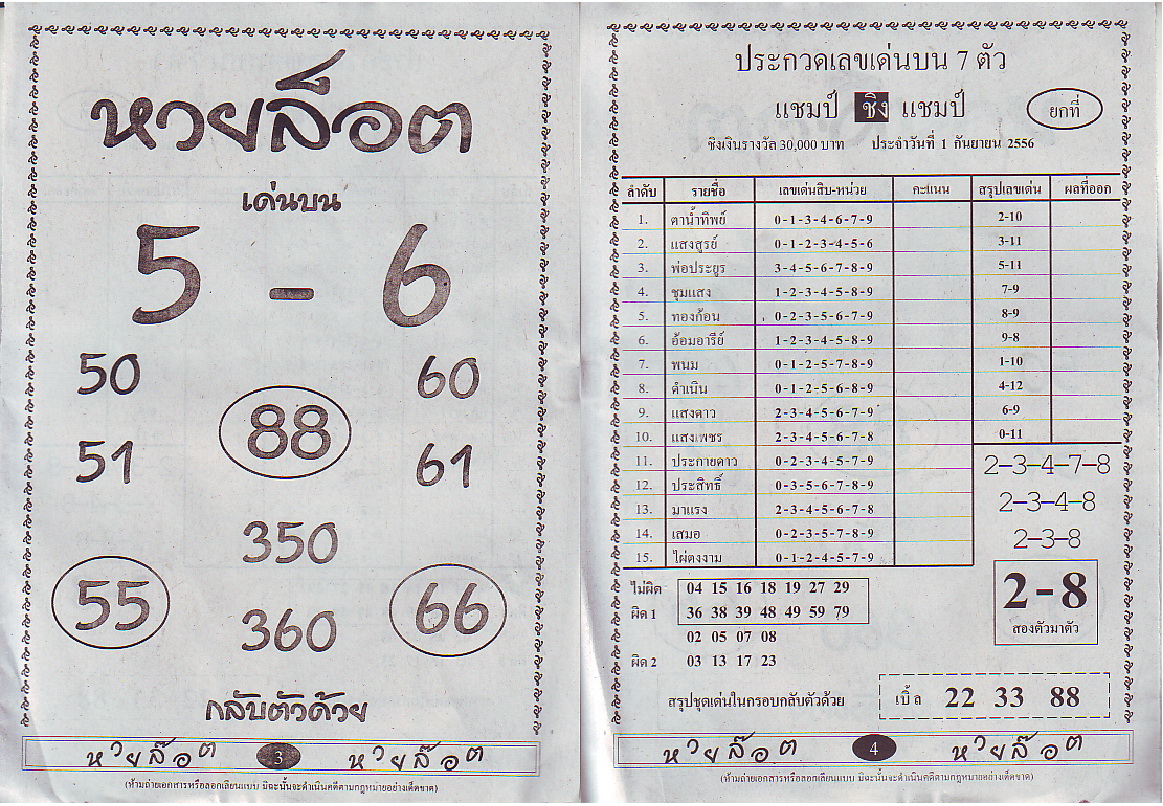 หวยล็อต
เด่นบน
5 - 6
50 60
88
51 61
350
55 66
360
กลับตัวด้วย
หวยล๊อต 3 หวยล๊อต
(ห้ามถ่ายเอกสารหรือลอกเลียนแบบ มิฉะนั้นจะดำเนินคดีตามกฎหมายอย่างเด็ดขาด)
ประกวดเลขเด่นบน 7 ตัว
แชมป์ ชิง แชมป์ ยกที่
ชิงเงินรางวัล 30,000 บาท ประจำวันที่ 1 กันยายน 2556
ลำดับ รายชื่อ เลขเด่นสิบ-หน่วย คะแนน สรุปเลขเด่น ผลที่ออก
1. ตาน้ำทิพย์ 0-1-3-4-6-7-9 2-10
2. แสงสูรย์ 0-1-2-3-4-5-6 3-11
3. พ่อประยูร 3-4-5-6-7-8-9 5-11
4. ชุมแสง 1-2-3-4-5-8-9 7-9
5. ทองก้อน 0-2-3-5-6-7-9 8-9
6. อ้อมอารีย์ 1-2-3-4-5-8-9 9-8
7. พนม 0-1-2-5-7-8-9 1-10
8. ดำเนิน 0-1-2-5-6-8-9 4-12
9. แสงดาว 2-3-4-5-6-7-9 6-9
10. แสงเพชร 2-3-4-5-6-7-8 0-11
11. ประกายดาว 0-2-3-4-5-7-9 2-3-4-7-8
12. ประสิทธิ์ 0-3-5-6-7-8-9 2-3-4-8
13. มาแรง 2-3-4-5-6-7-8
14. เสมอ 0-2-3-5-7-8-9 2-3-8
15. ไผ่ตงงาม 0-1-2-4-5-7-9
2-8
สองตัวมาตัว
ไม่ผิด 04 15 16 18 19 27 29
ผิด 1 36 38 39 48 49 59 79
02 05 07 08
ผิด 2 03 13 17 23
สรุปชุดเด่นในกรอบกลับตัวด้วย เบิ้ล 22 33 88
หวยล๊อต 4 หวยล๊อต
(ห้ามถ่ายเอกสารหรือลอกเลียนแบบ มิฉะนั้นจะดำเนินคดีตามกฎหมายอย่างเด็ดขาด)